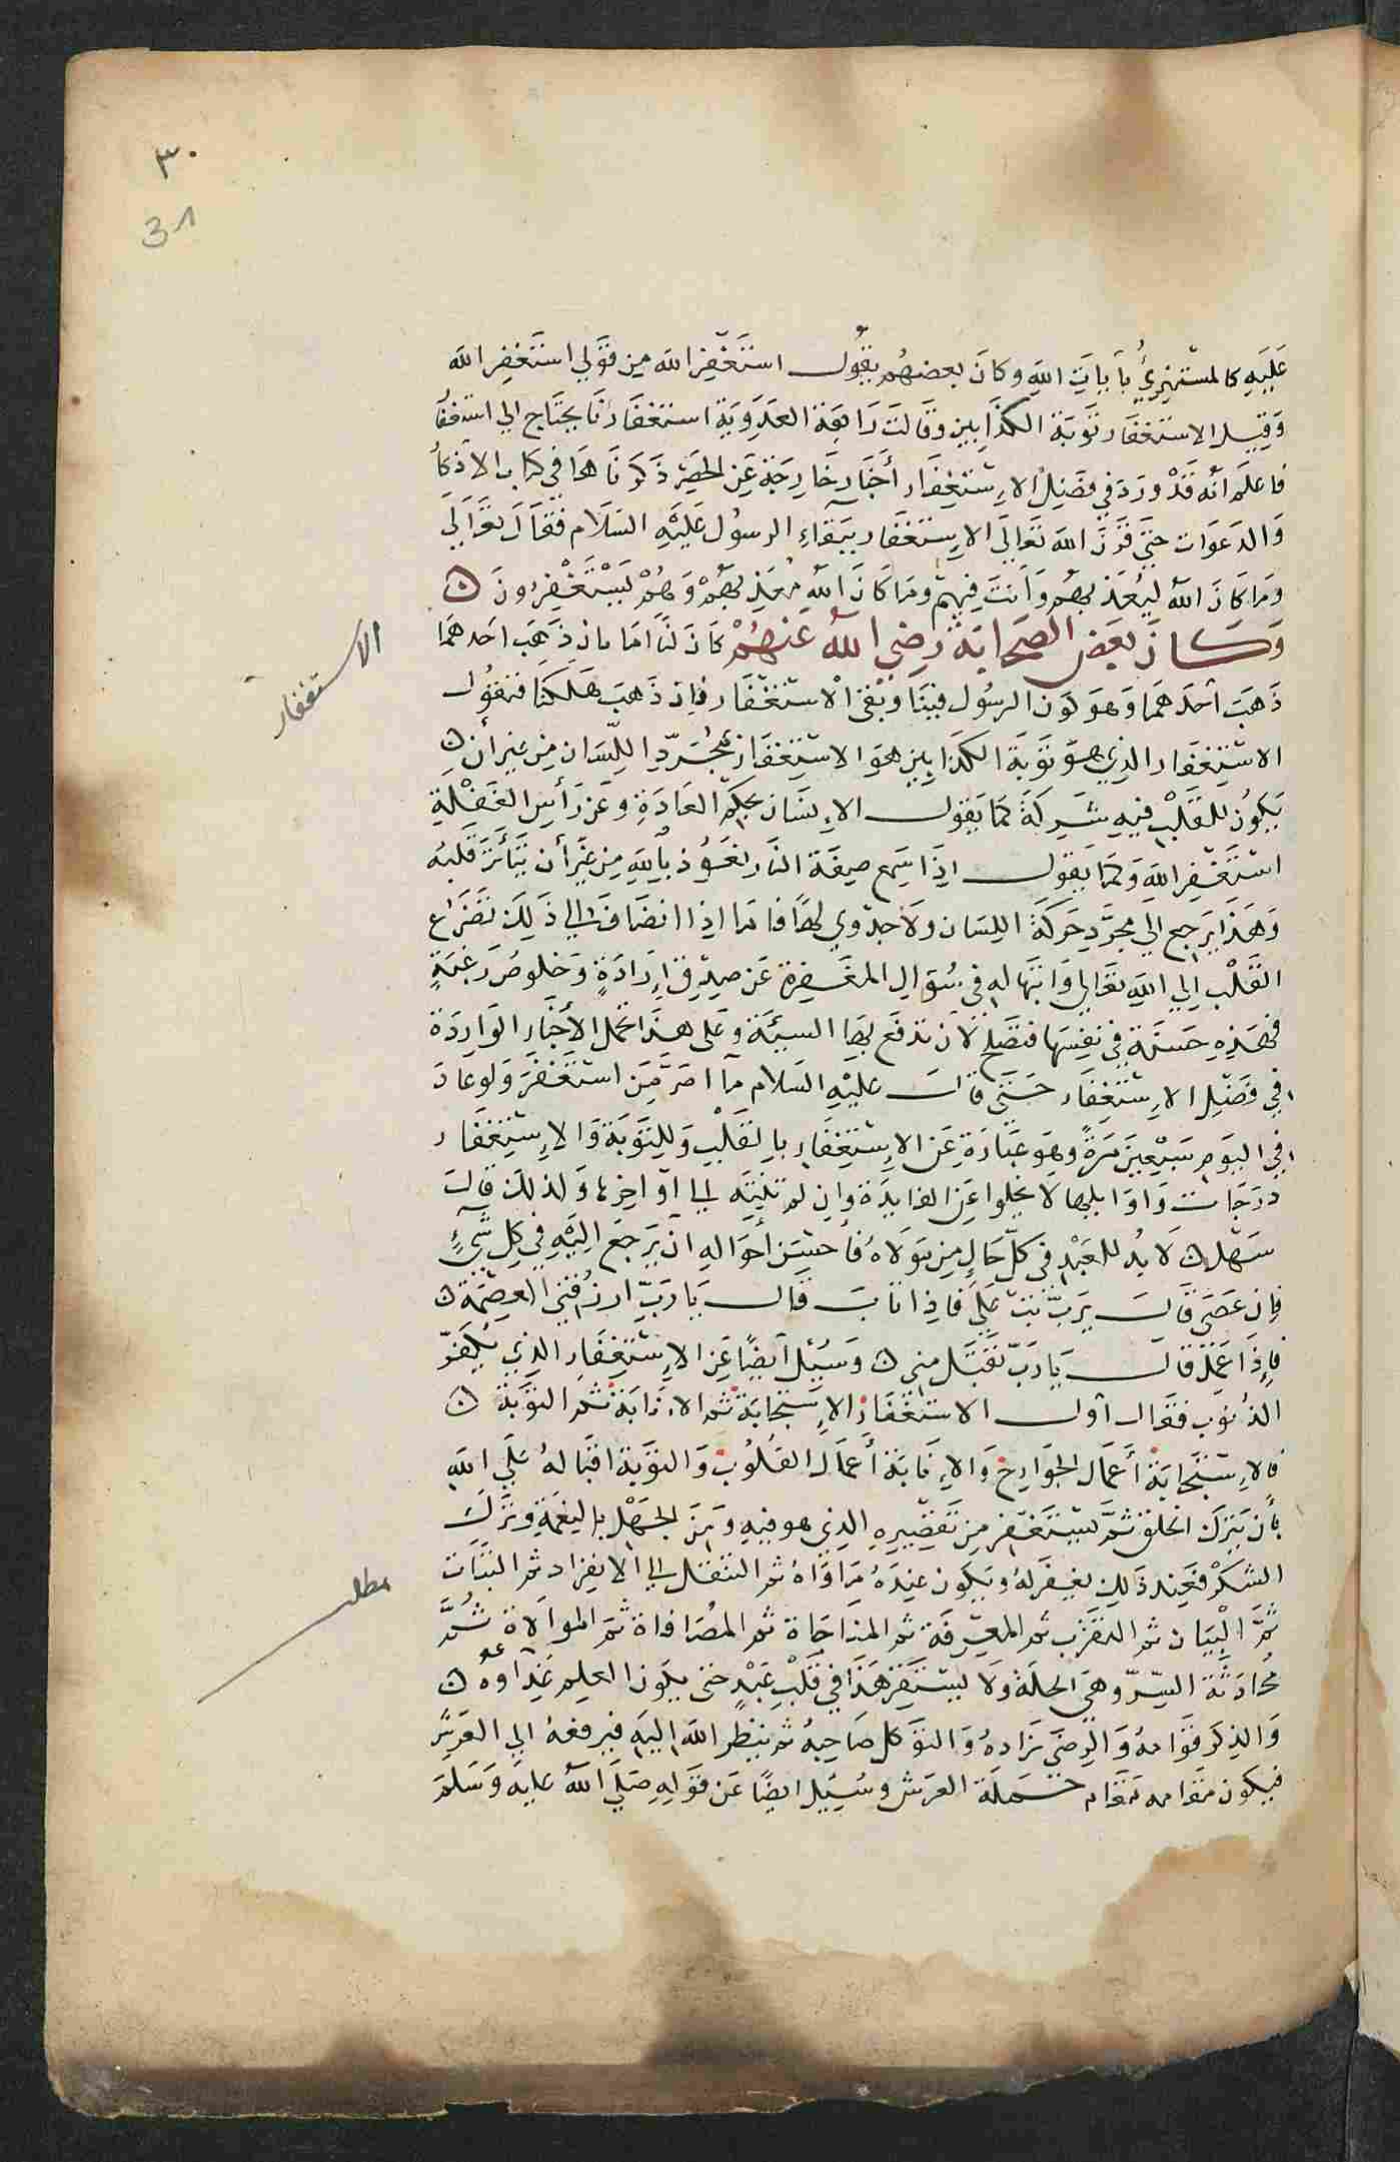 ٣٠
31
عَلَيْهِ كالمستهزئ بآيات الله وكان بعضهم يقول استغفر الله من قولي استغفر الله
وقيل الاستغفار توبة الكذابين وقالت رابعة العدوية استغفارنا يحتاج الي استغفا
فاعلم أنه قد ورد في فضل الاستغفار أخبار خارجة عن الحصر ذكرناها في كتاب الاذكا
والدعوات حتى قرن الله تعالى الاستغفار ببقاء الرسول عليه السلام فقال تعالي
وما كان الله ليعذبهم وأنت فيهم وما كان الله معذبهم وهم يستغفرون ن
وكان بعض الصحابة رضي الله عنهم كان لنا امامان ذهب احدهما
ذهب احدهما وهو كون الرسول فينا وبقى الاستغفار فإن ذهب هلكنا فنقول
الاستغفار الذي هو توبة الكذابين هو الاستغفار بمجرد اللسان من غير أن ن
يكون للقلب فيه شركة كما يقول الإنسان بحكم العادة وعن رأس الغفلة
استغفر الله وكما يقول إذا سمع صفة النار نعوذ بالله من غير أن يتأثر قلبه
وهذا يرجع الي مجرد حركة اللسان ولا جدوي لها فاما اذا انضاف الي ذلك تضراع
القلب إلي الله تعالي وابتهاله في سؤال المغفرة عن صدق إرادة وخلوص رغبة
فهذه حسنة في نفسها فتصلح لان تدفع بها السيئة وعلى هذا تحمل الأخبار الواردة
في فضل الاستغفار حتى قال عليه السلام ما اصر من استغفر ولو عاد
في اليوم سبعين مرة وهو عبارة عن الاستغفار بالقلب وللتوبة والاستغفار
درجات واوايلها لا يخلوا عن الفايدة وان لم تنته الي اواخرها ولذلك قال
سهل ن لا بد للعبد في كل حال من مولاه فأحسن أحواله ان يرجع اليه في كل شيء
فان عصى قال يرب تب علي فاذا تاب قال يا رب ارزقني العصمة ن
فإذا عمل قال يا رب تقبل مني ن وسئل ايضا عن الاستغفار الذي يكفر
الذنوب فقال اول الاستغفار الاستجابة ثم الانابة ثم التوبة ن
فالاستجابة أعمال الجوارح والإنابة أعمال القلوب والتوبة اقباله علي الله
بأن يترك الخلق ثم يستغفر من تقصيره الذي هو فيه ومن الجهل بالنعمة وترك
الشكر فعند ذلك يغفر له ويكون عنده مأواه ثم التنقل الي الانفراد ثم الثبات
ثم البيان ثم التقرب ثم المعرفة ثم المناجاة ثم المصافاة ثم الموالاة ثم
محادثة السر وهي الخلة ولا يستقر هذا في قلب عبد حتى يكون العلم غذاوه ن
والذكر قوامه والرضى زاده والتوكل صاحبه ثم ينظر الله اليه فيرفعه الي العرش
فيكون مقامه مقام حملة العرش وسئل ايضا عن قوله صلي الله عليه وسلم
الاستغفار
مطلب